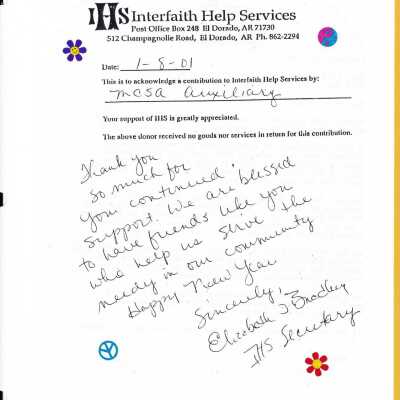 IHS Interfaith Help Services
Post Office Box 248 El Dorado, AR 71730
512 Champagnolle Road, El Dorado, AR Ph. 862-2294
Date: 1-8-01
This is to acknowledge a contribution to Interfaith Help Services by:
MCSA Auxiliary
Your support of IHS is greatly appreciated.
The above donor received no goods nor services in return for this contribution.
Thank you
so much for
your continued
support. We are blessed
to have friends like you
who help us serve the
needy in our community
Happy New Year
Sincerely,
Elizabeth J Bradley
IHS Secretary